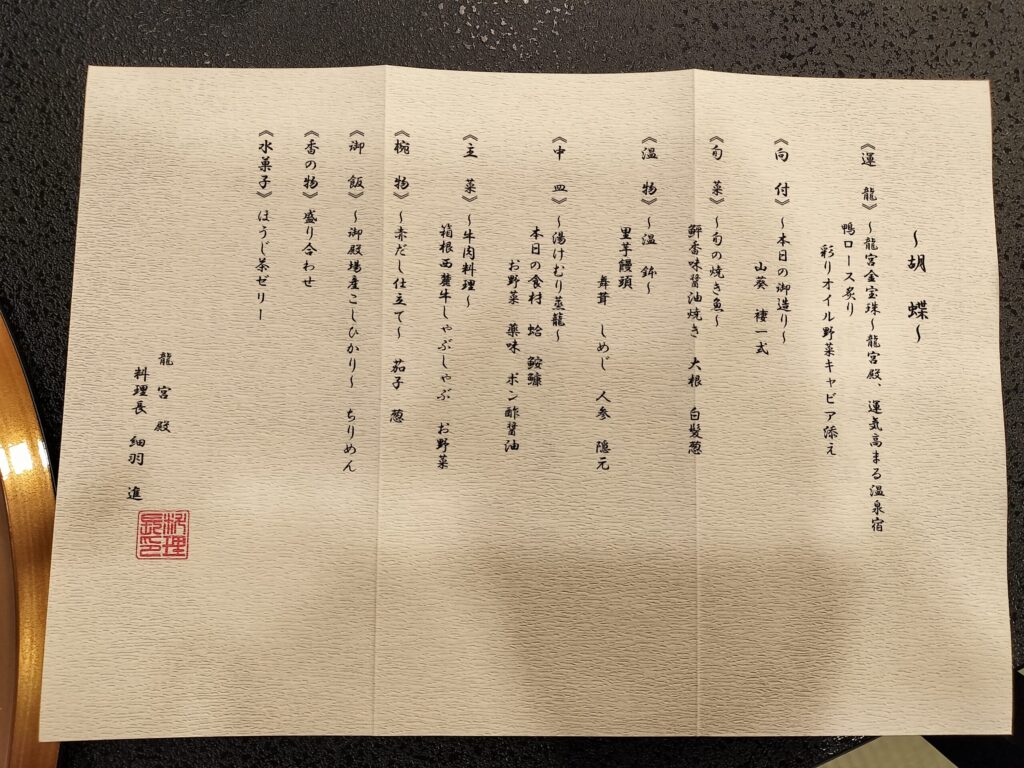 ～胡 蝶～
《運 龍》～龍宮金宝珠～龍宮殿、運気高まる温泉宿
鴨ロース炙り
彩りオイル野菜キャビア添え
《向 付》～本日の御造り～
山葵 褄一式
《旬 菜》～旬の焼き魚～
鰆香味醤油焼き 大根 白髪葱
《温 物》～温 鉢～
里芋饅頭
舞茸 しめじ 人参 隠元
《中 皿》～湯けむり蒸籠～
本日の食材 蛤 鮟鱇
お野菜 薬味 ポン酢醤油
《主 菜》～牛肉料理～
箱根西麓牛しゃぶしゃぶ お野菜
《椀 物》～赤だし仕立て～ 茄子 葱
《御 飯》～御殿場産こしひかり～ ちりめん
《香の物》盛り合わせ
《水菓子》ほうじ茶ゼリー
龍 宮 殿
料理長 細羽 進
料理長印